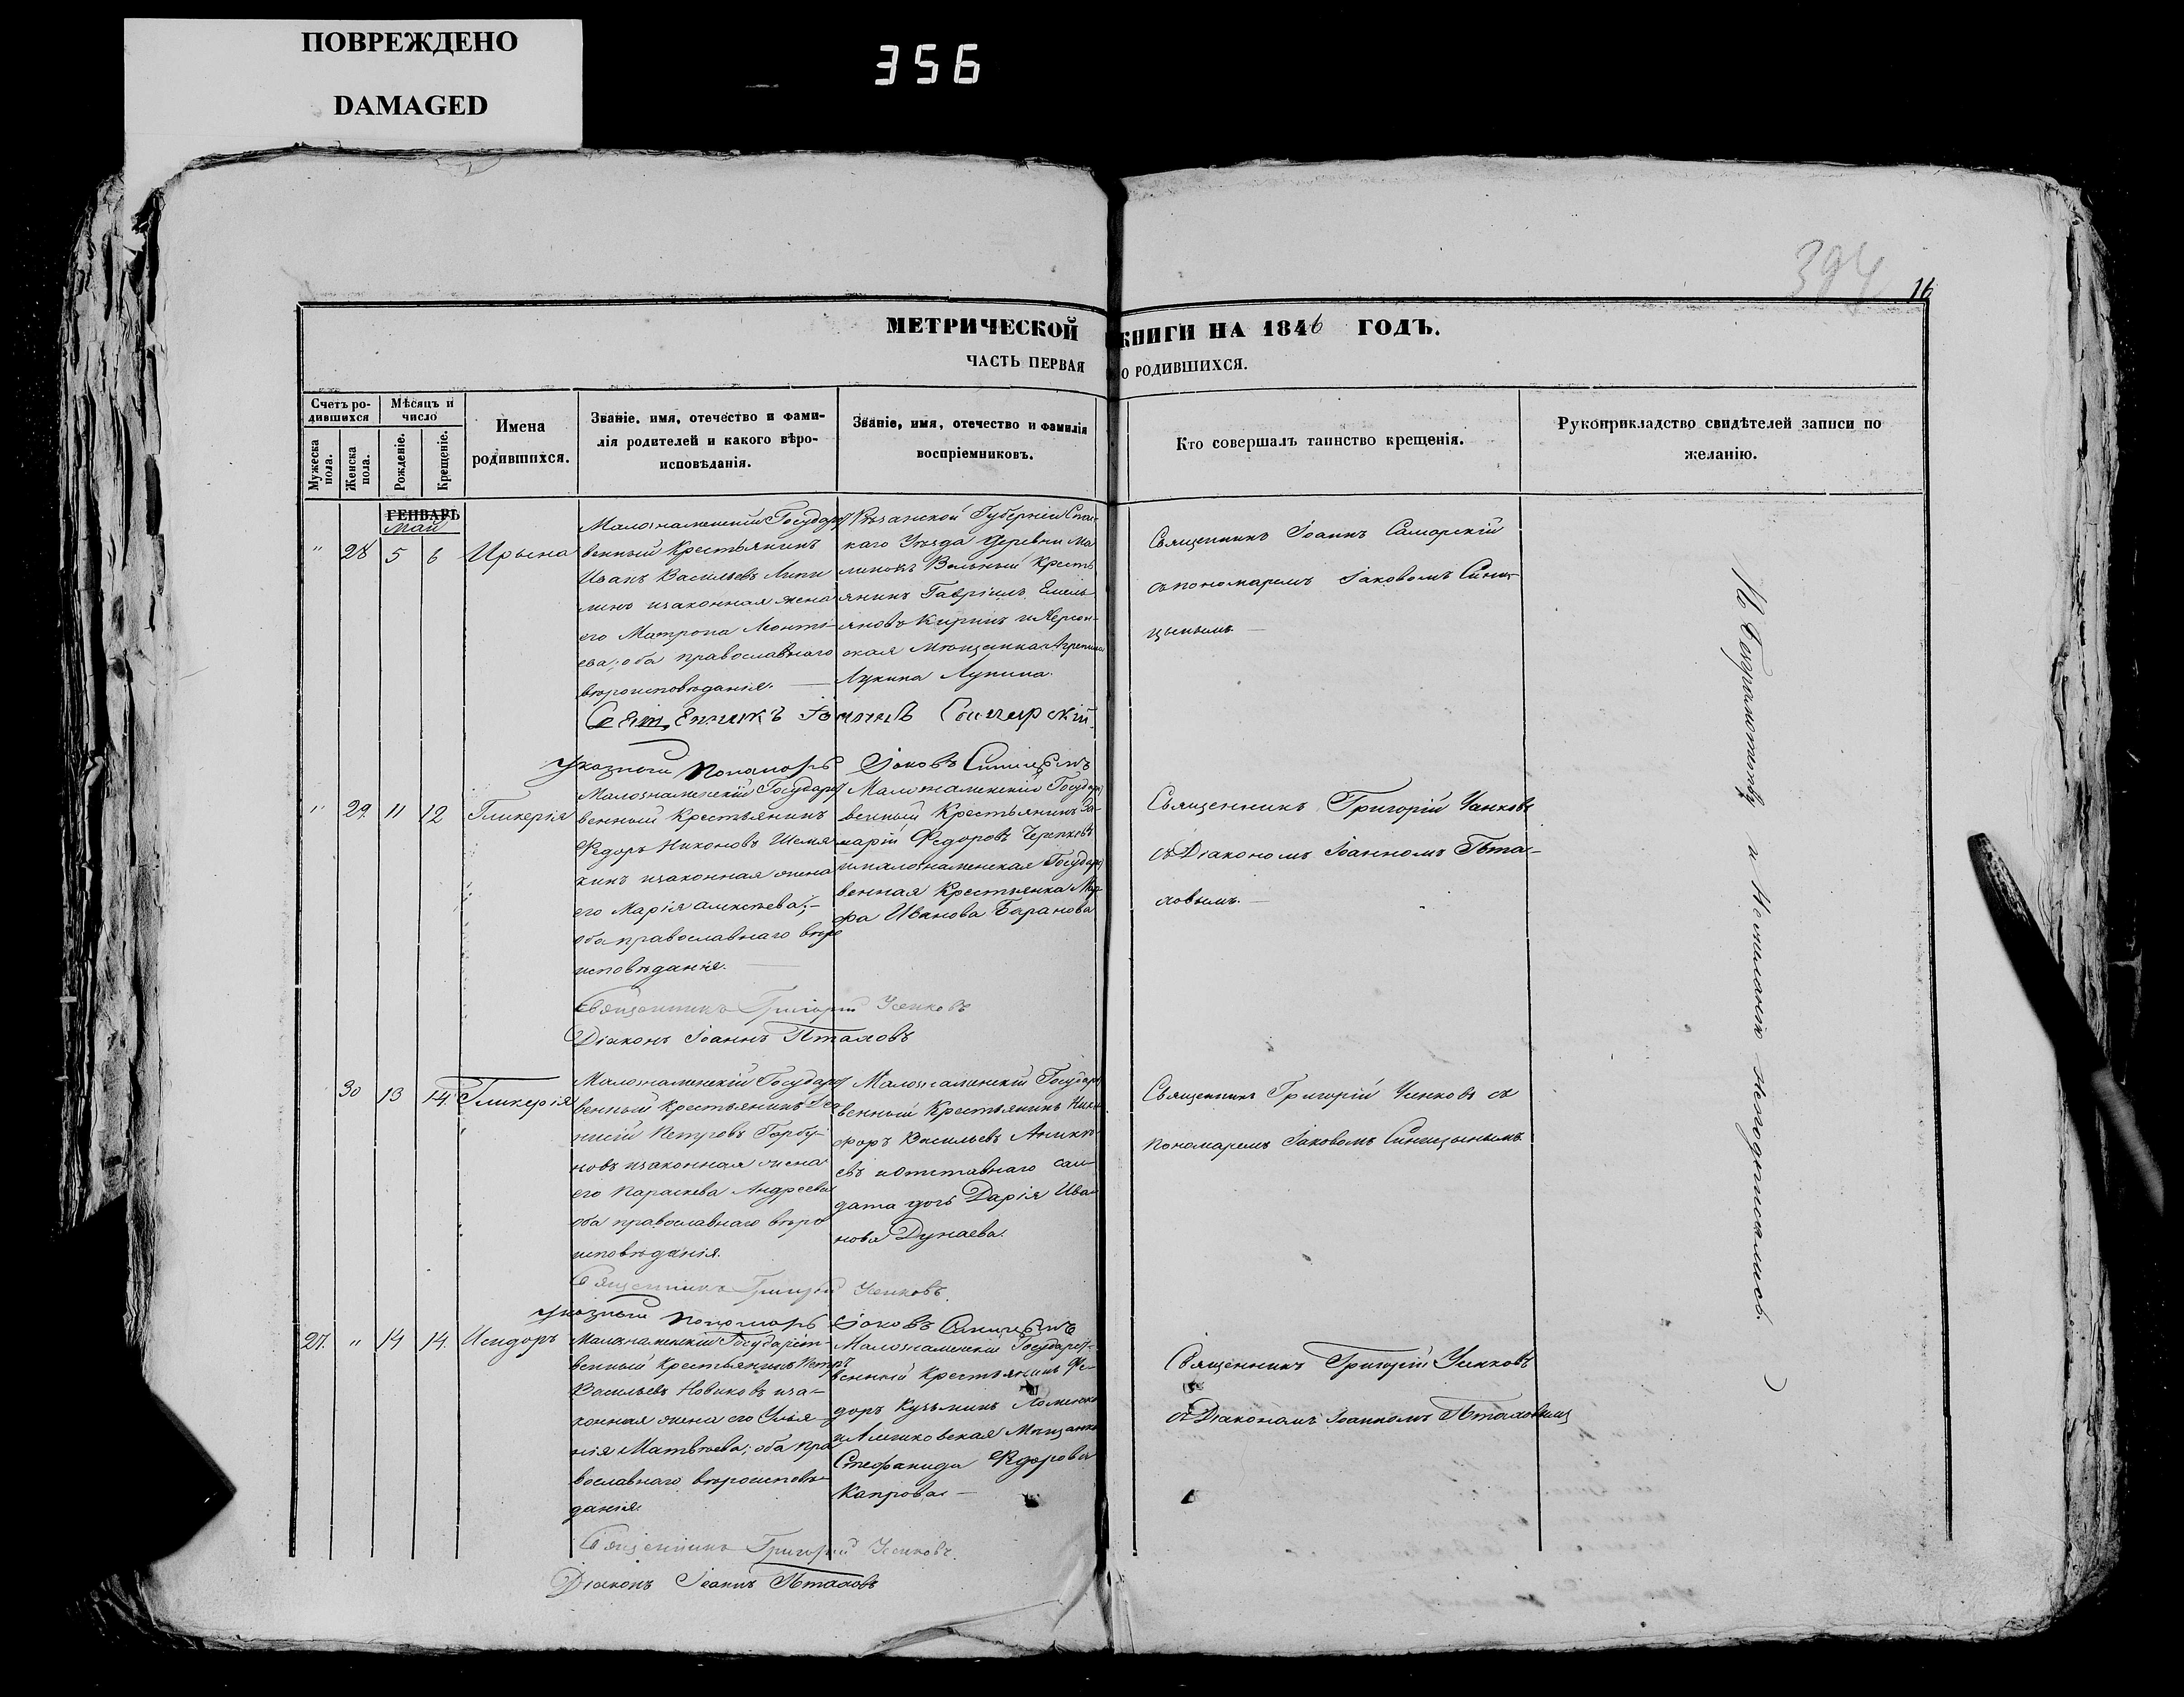 ПОВРЕЖДЕНО
DAMAGED
356
394
16
МЕТРИЧЕСКОЙ КНИГИ НА 1846 ГОДЪ.
ЧАСТЬ ПЕРВАЯ О РОДИВШИХСЯ.
Счетъ ро-
дившихся
Мужеска пола.
Женска пола.
Мѣсяцъ и
число
Рожденіе.
Крещеніе.
Имена
родившихся.
Званіе, имя, отечество и фами-
лія родителей и какого вѣро-
исповѣданія.
Званіе, имя, отечество и фамилія
воспріемниковъ.
Кто совершалъ таинство крещенія.
Рукоприкладство свидѣтелей записи по
желанію.
ГЕНВАРЬ
Май
" 28 5 6 Ирына
Малознаменскій Государст
венный Крестьянинъ
Иванъ Васильевъ
линъ изаконная жена
его Матрона Леонті-
ева; оба православнаго
вѣроисповѣданія. —
Рязанской Губерніи Спас-
каго Уѣзда Деревни Ма
линокъ Вольный Кресть
янинъ Гавріилъ Емель
яновъ Киринъ и Херсон-
ская Мѣщанка Агрепина
Лукина Лупина.
Священникъ Іоаннъ Самарскій
съпономаремъ Іаковомъ Сини-
цынымъ. —
Священникъ Іоаннъ Самарскій.
Указный Пономарь Іаковъ Синицынъ
" 29. 11 12 Гликерія
Малознаменскій Государст
венный Крестьянинъ
Федоръ Никоновъ Шемя
кинъ изаконная жена
его Марія Алексѣева; —
оба православнаго вѣро
исповѣданія. —
Малознаменскій Государст
венный Крестьянинъ За-
харій Федоровъ Черепковъ
ималознаменская Государст
венная Крестьянка Мар-
фа Иванова Баранова
Священникъ Григорій Усенковъ
съ Діакономъ Іоанномъ Пта-
ховымъ. —
Священникъ Григорій Усенковъ
Діаконъ Іоаннъ Птаховъ
30 13 14. Гликерія
Малознаменскій Государст
венный Крестьянинъ Део
нисій Петровъ Горбу-
новъ изаконная жена
его Параскева Андреева
оба православнаго вѣро
исповѣданія.
Малознаменскій Государст
венный Крестьянинъ Ники
форъ Васильевъ Аникѣ-
евъ иотставнаго сал
дата дочь Дарія Ива
нова Дунаева.
Священникъ Григорій Усенковъ съ
Пономаремъ Іаковомъ Синицынымъ
Священникъ Григорій Усенковъ.
Указный Пономарь Іаковъ Синицынъ
27. " 14 14. Исидоръ
Малознаменскій Государст-
венный Крестьянинъ Петръ
Васильевъ Новиковъ иза-
конная жена его Улья
нія Матвѣева; оба пра
вославнаго вѣроисповѣ-
данія.
Малознаменскій Государст-
венный Крестьянинъ Фе-
доръ Кузьминъ
и Алешковская Мѣщанка
Стефанида Федорова
Капрова. —
Священникъ Григорій Усенковъ
съ Діакономъ Іоанномъ Птаховымъ
Священникъ Григорій Усенковъ.
Діаконъ Іоаннъ Птаховъ
По Безграмотству и Нежеланію Неподписались.